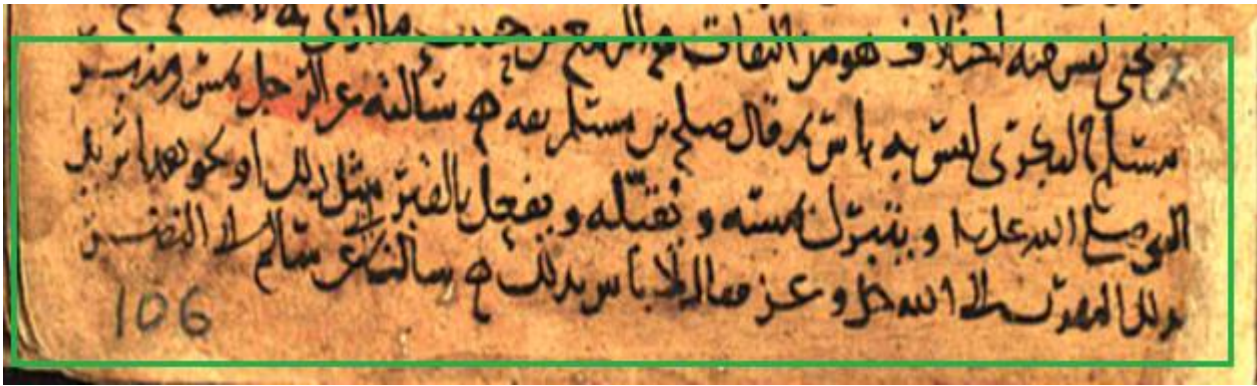 ليس فيه اختلاف هو من الثقات
مسلم ليس به باس قال صلح بن مسلم ثقه ه سالته عن الرجل يمس منبر
النبي صلى الله عليه و يتبرك بمسه و يقبله و يفعل بالقبر مثل ذلك او نحو هذا يريد
بذلك التقرب الى الله جل و عز فقال لا باس بذلك ه سالته عن سالم ابي النضر
106